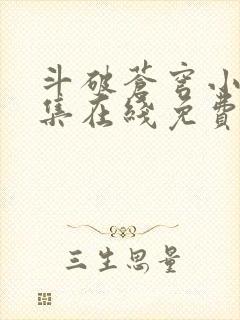 斗破蒼穹小
集在綫免費
三生思量